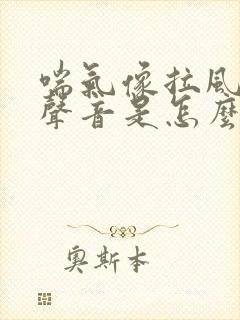 喘氣像拉風
聲音是怎麼
奧斯本